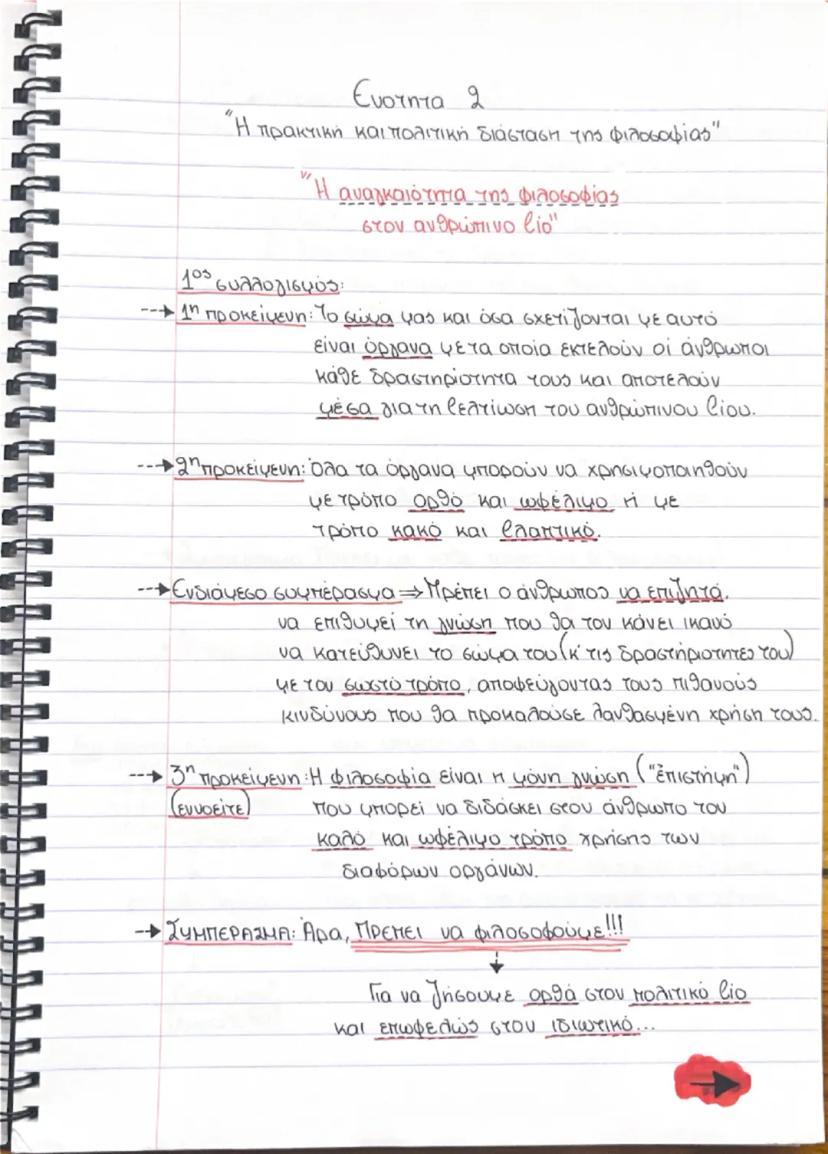 Ενότητα 2
"Η πρακτική και πολιτική διάσταση της φιλοσοφίας"
"Η αναγκαιότητα της φιλοσοφίας
στον ανθρώπινο βίο"
1ος συλλογισμός:
1η προκείμενη: Το σώμα μας και όσα σχετίζονται με αυτό
είναι όργανα με τα οποία εκτελούν οι άνθρωποι
κάθε δραστηριότητα τους και αποτελούν
μέσα για τη βελτίωση του ανθρώπινου βίου.
2η προκείμενη: Όλα τα όργανα μπορούν να χρησιμοποιηθούν
με τρόπο ορθό και ωφέλιμο ή με
τρόπο κακό και βλαπτικό.
Ενδιάμεσο συμπέρασμα ⇒ Πρέπει ο άνθρωπος να επιζητά,
να επιθυμεί τη γνώση που θα τον κάνει ικανό
να κατευθύνει το σώμα του (κ' τις δραστηριότητες του)
με τον σωστό τρόπο, αποφεύγοντας τους πιθανούς
κινδύνους που θα προκαλούσε λανθασμένη χρήση τους.
3η προκείμενη: Η φιλοσοφία είναι η μόνη γνώση ("επιστήμη")
(εννοείτε) που μπορεί να διδάσκει στον άνθρωπο τον
καλό και ωφέλιμο τρόπο χρήσης των
διαφόρων οργάνων.
ΣΥΜΠΕΡΑΣΜΑ: Άρα, ΠΡΕΠΕΙ να φιλοσοφούμε!!!
Για να ζήσουμε ορθά στον πολιτικό βίο
και επωφελώς στον ιδιωτικό...